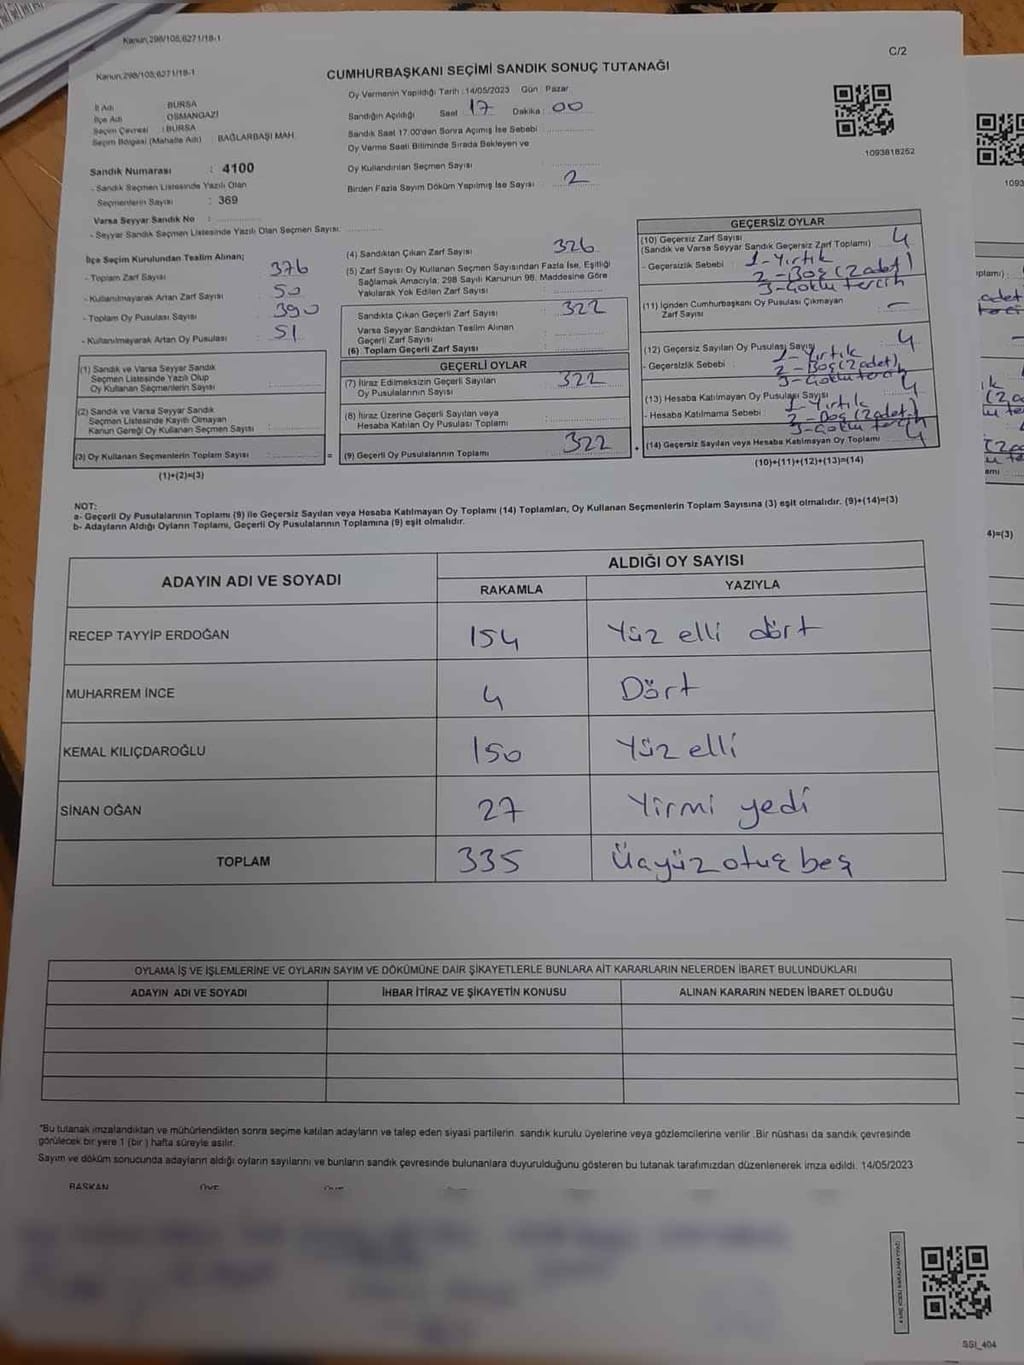 Kanun,298/105,6271/18-1
C/2
Kanun,298/105,6271/18-1
CUMHURBAŞKANI SEÇİMİ SANDIK SONUÇ TUTANAĞI
İl Adı : BURSA
İlçe Adı : OSMANGAZİ
Seçim Çevresi : BURSA
Seçim Bölgesi (Mahalle Adı) : BAĞLARBAŞI MAH.
Sandık Numarası : 4100
- Sandık Seçmen Listesinde Yazılı Olan
Seçmenlerin Sayısı : 369
Varsa Seyyar Sandık No :
- Seyyar Sandık Seçmen Listesinde Yazılı Olan Seçmen Sayısı:
Oy Vermenin Yapıldığı Tarih :14/05/2023 Gün : Pazar
Sandığın Açıldığı Saat 17 Dakika : 00
Sandık Saat 17.00'den Sonra Açımış İse Sebebi :
Oy Verme Saati Bitiminde Sırada Bekleyen ve
Oy Kullandırılan Seçmen Sayısı
Birden Fazla Sayım Döküm Yapılmış İse Sayısı : 2
1093818252
1093
İlçe Seçim Kurulundan Teslim Alınan;
- Toplam Zarf Sayısı : 376
- Kullanılmayarak Artan Zarf Sayısı : 50
- Toplam Oy Pusulası Sayısı : 390
- Kullanılmayarak Artan Oy Pusulası : 51
(1) Sandık ve Varsa Seyyar Sandık
Seçmen Listesinde Yazılı Olup
Oy Kullanan Seçmenlerin Sayısı :
(2) Sandık ve Varsa Seyyar Sandık
Seçmen Listesinde Kayıtlı Olmayan
Kanun Gereği Oy Kullanan Seçmen Sayısı :
(3) Oy Kullanan Seçmenlerin Toplam Sayısı :
=
(1)+(2)=(3)
(4) Sandıktan Çıkan Zarf Sayısı : 326
(5) Zarf Sayısı Oy Kullanan Seçmen Sayısından Fazla İse, Eşitliği
Sağlamak Amacıyla; 298 Sayılı Kanunun 98. Maddesine Göre
Yakılarak Yok Edilen Zarf Sayısı :
Sandıkta Çıkan Geçerli Zarf Sayısı : 322
Varsa Seyyar Sandıktan Teslim Alınan
Geçerli Zarf Sayısı :
(6) Toplam Geçerli Zarf Sayısı :
GEÇERLİ OYLAR
(7) İtiraz Edilmeksizin Geçerli Sayılan
Oy Pusulasının Sayısı : 322
(8) İtiraz Üzerine Geçerli Sayılan veya
Hesaba Katılan Oy Pusulası Toplamı :
(9) Geçerli Oy Pusulalarının Toplamı : 322
+
GEÇERSİZ OYLAR
(10) Geçersiz Zarf Sayısı
(Sandık ve Varsa Seyyar Sandık Geçersiz Zarf Toplamı) : 4
- Geçersizlik Sebebi : 1-Yırtık
2-Boş(2 adet)
3-Çoklu tercih
(11) İçinden Cumhurbaşkanı Oy Pusulası Çıkmayan
Zarf Sayısı : –
(12) Geçersiz Sayılan Oy Pusulası Sayısı : 4
- Geçersizlik Sebebi : 1-Yırtık
2-Boş(2adet)
3-Çoklu tercih
(13) Hesaba Katılmayan Oy Pusulası Sayısı : 4
- Hesaba Katılmama Sebebi : 1-Yırtık
2-Boş(2adet)
3-Çoklu tercih
(14) Geçersiz Sayılan veya Hesaba Katılmayan Oy Toplamı : 4
(10)+(11)+(12)+(13)=(14)
4)=(3)
NOT:
a- Geçerli Oy Pusulalarının Toplamı (9) ile Geçersiz Sayılan veya Hesaba Katılmayan Oy Toplamı (14) Toplamları, Oy Kullanan Seçmenlerin Toplam Sayısına (3) eşit olmalıdır. (9)+(14)=(3)
b- Adayların Aldığı Oyların Toplamı, Geçerli Oy Pusulalarının Toplamına (9) eşit olmalıdır.
ADAYIN ADI VE SOYADI
ALDIĞI OY SAYISI
RAKAMLA YAZIYLA
RECEP TAYYİP ERDOĞAN 154 Yüz elli dört
MUHARREM İNCE 4 Dört
KEMAL KILIÇDAROĞLU 150 Yüz elli
SİNAN OĞAN 27 Yirmi yedi
TOPLAM 335 Üçyüz otuz beş
OYLAMA İŞ VE İŞLEMLERİNE VE OYLARIN SAYIM VE DÖKÜMÜNE DAİR ŞİKAYETLERLE BUNLARA AİT KARARLARIN NELERDEN İBARET BULUNDUKLARI
ADAYIN ADI VE SOYADI İHBAR İTİRAZ VE ŞİKAYETİN KONUSU ALINAN KARARIN NEDEN İBARET OLDUĞU
*Bu tutanak imzalandıktan ve mühürlendikten sonra seçime katılan adayların ve talep eden siyasi partilerin sandık kurulu üyelerine veya gözlemcilerine verilir .Bir nüshası da sandık çevresinde
görülecek bir yere 1 (bir ) hafta süreyle asılır.
Sayım ve döküm sonucunda adayların aldığı oyların sayılarını ve bunların sandık çevresinde bulunanlara duyurulduğunu gösteren bu tutanak tarafımızdan düzenlenerek imza edildi. 14/05/2023
BAŞKAN ÜYE ÜYE
SSI_404